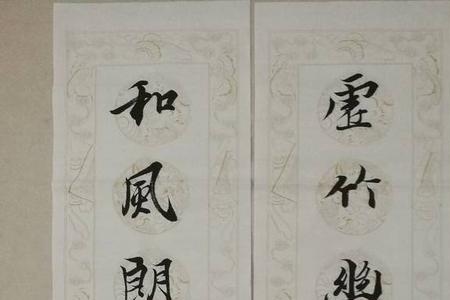 虛竹幽
和風朗